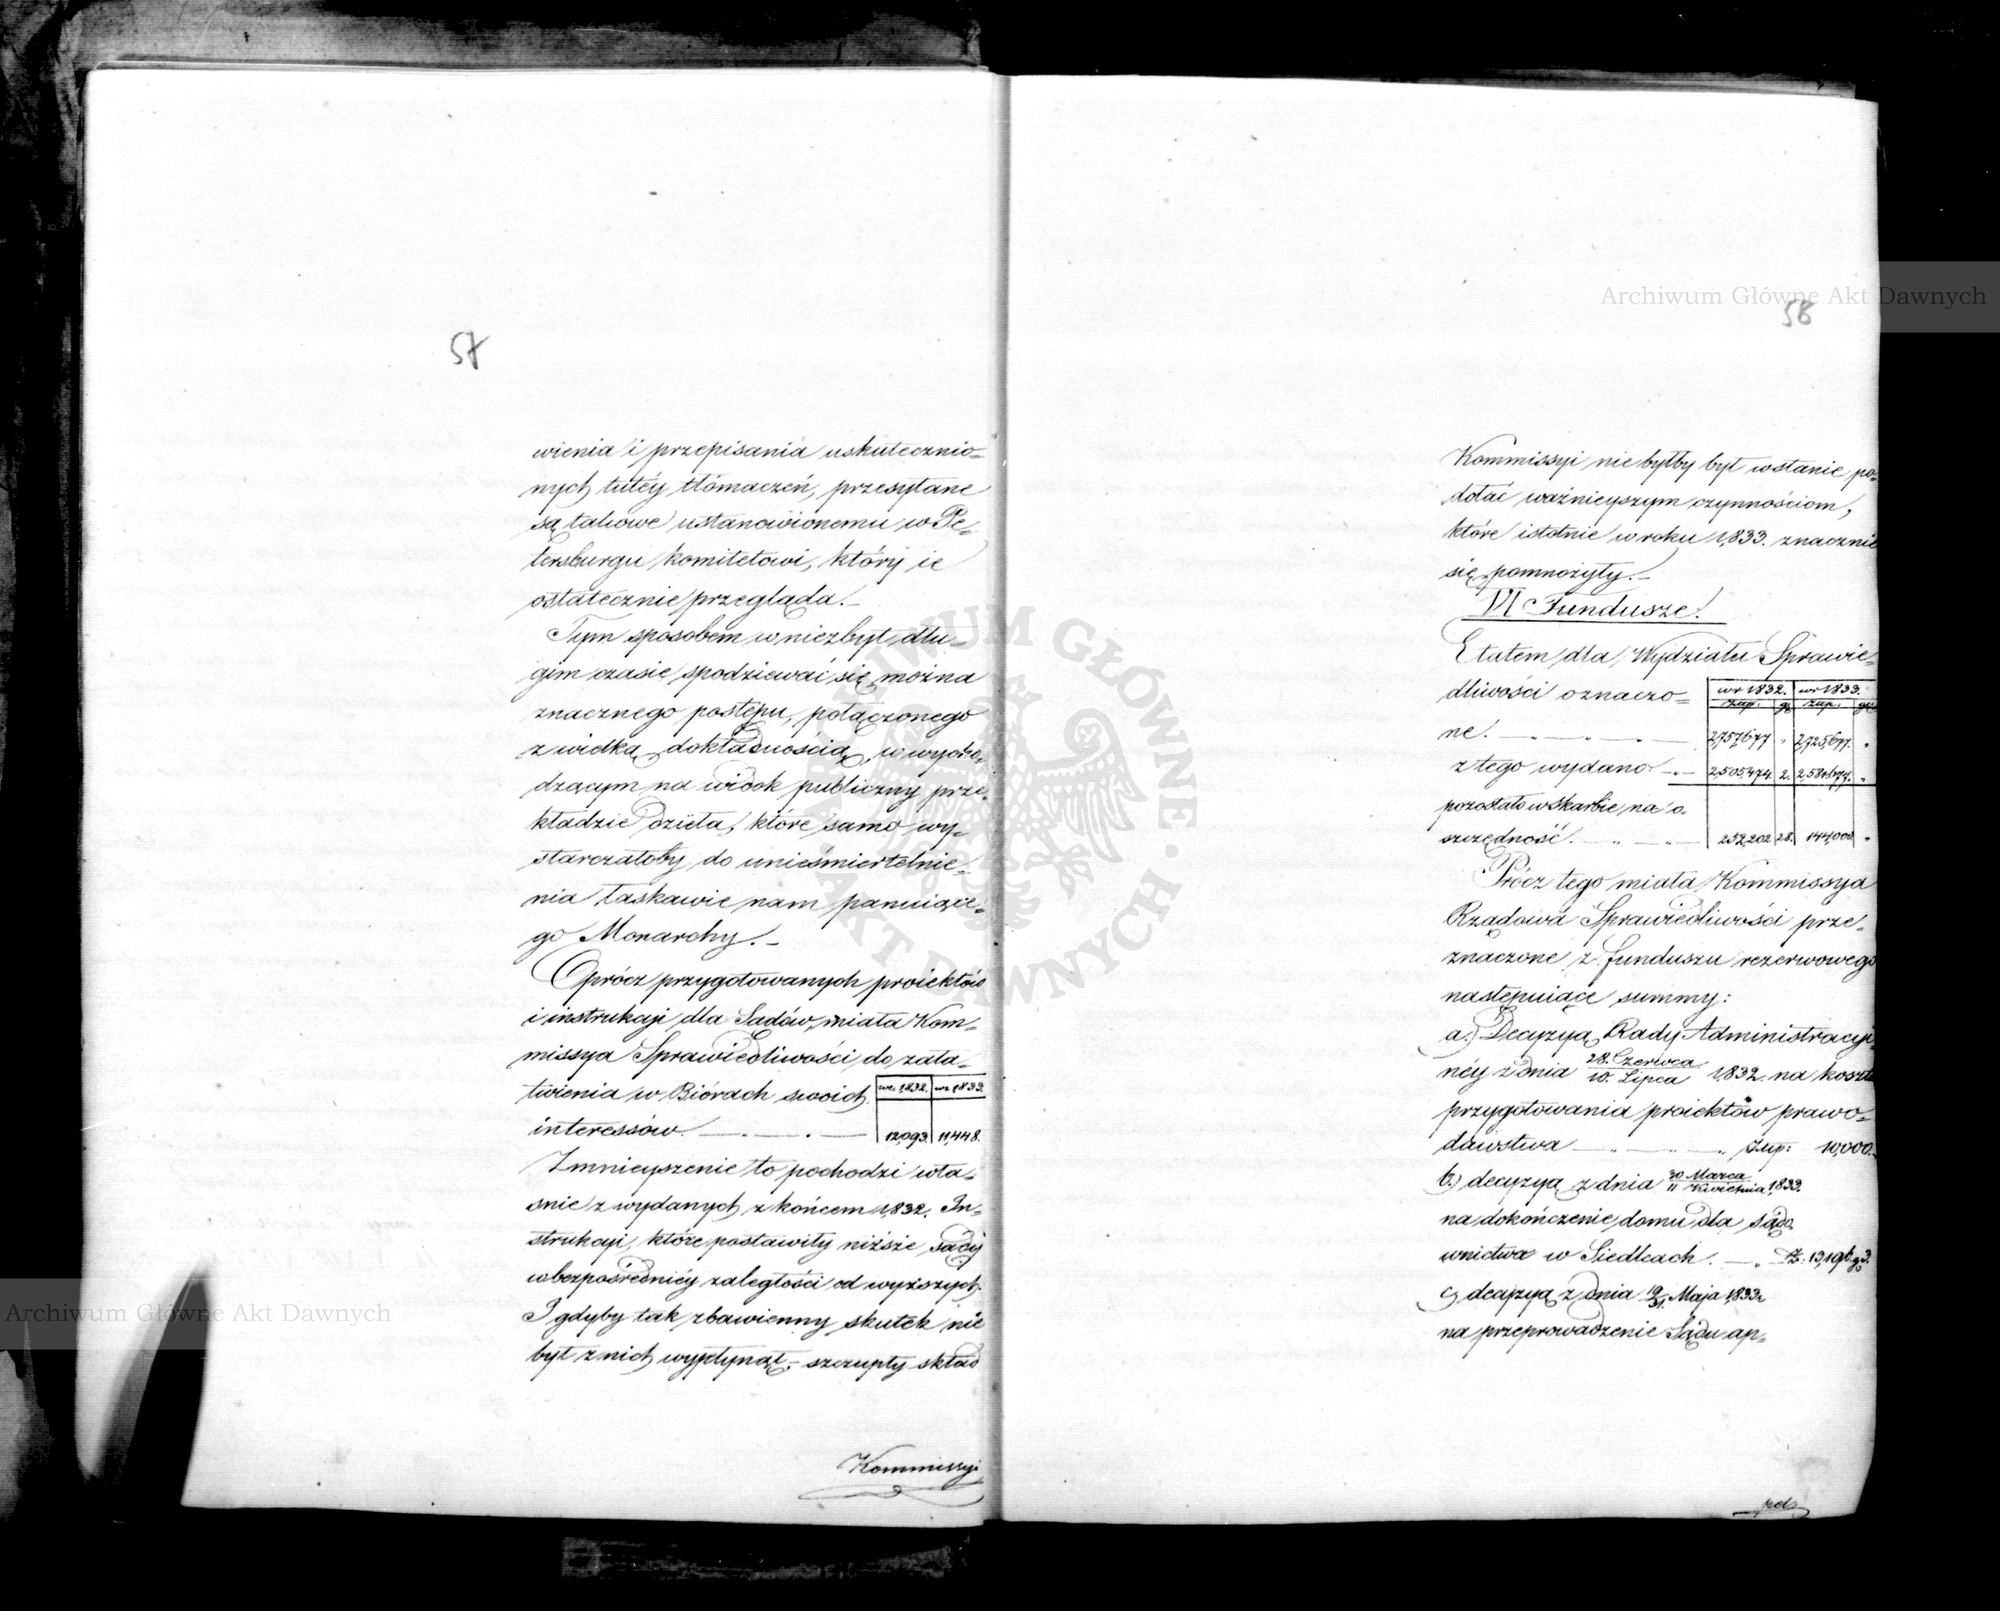 57
wienia i przepisania uskutecznio-
nych tutéy tłómaczeń, przesyłane
są takowe ustanowionemu w Pe-
tersburgu komitetowi, który ie
ostatecznie przegląda.-
Tym sposobem w niezbyt dłu-
gim czasie spodziewać się można
znacznego postępu, połączonego
z wielką dokładnością, w wycho-
dzącym na widok publiczny prze-
kładzie dzieła, które samo wy-
starczałoby do unieśmiertelnie-
nia łaskawie nam panuiące-
go Monarchy.-
Oprócz przygotowanych proiektów
i instrukcji dla Sądów, miała Kom-
missya Sprawiedliwości do zała-
twienia w Biórach swoich wr. 1832. wr 1833.
interessów 12,093. 11,448.
Zmnieyszenie to pochodzi wła-
śnie z wydanych z końcem 1832. In-
strukcyi, które postawiły niższe sądy
w bezpośredniéy zaległości od wyższych.
I gdyby tak zbawienny skutek nie
był z nich wypłynął,- szczupły skład
Kommissyi
58
Kommissyi nie byłby był wstanie po-
dołać ważnieyszym czynnościom,
które istotnie w roku 1833. znacznie
się pomnożyły.-
VI Fundusze.
Etatem dla Wydziału Sprawie-
dliwości oznaczo- wr 1832. wr 1833.
złp: gr złp: gr
ne. 2,757,677 " 2,725,677. "
z tego wydano 2,505,474. 2. 2,581,677. "
pozostało w skarbie na o-
szczędność. 252,202 28. 144,000 "
Prócz tego miała Kommissya
Rządowa Sprawiedliwości prze-
znaczone z funduszu rezerwowego
następuiące summy:
a.) Decyzyą Rady Administracyi-
néy z dnia 28. Czerwca / 10. Lipca 1832. na koszta
przygotowania proiektów prawo-
dawstwa Złp: 10,000.
b.) decyzyą z dnia 30 Marca / 11 Kwietnia 1833.
na dokończenie domu dla sądo-
wnictwa w Siedlcach. Zł: 13,196. g 3.
c) decyzyą z dnia 19/31. Maja 1833 r
na przeprowadzenie Sądu ap-
pel
Archiwum Główne Akt Dawnych
Archiwum Główne Akt Dawnych
ARCHIWUM GŁÓWNE AKT DAWNYCH